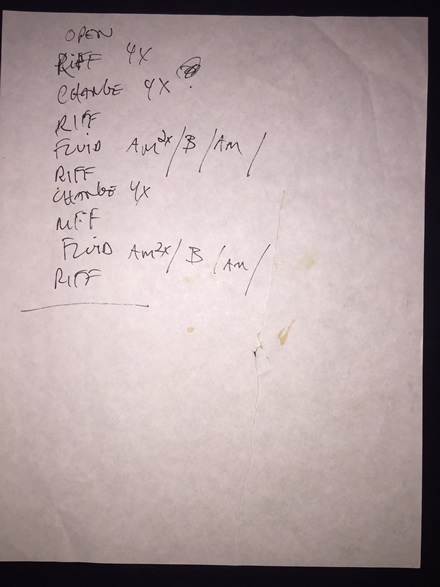 OPEN
RIFF 4X
CHANGE 4X ?
RIFF
FLUID Am2x / B / Am /
RIFF
CHANGE 4X
RIFF
FLUID Am2x / B / Am /
RIFF